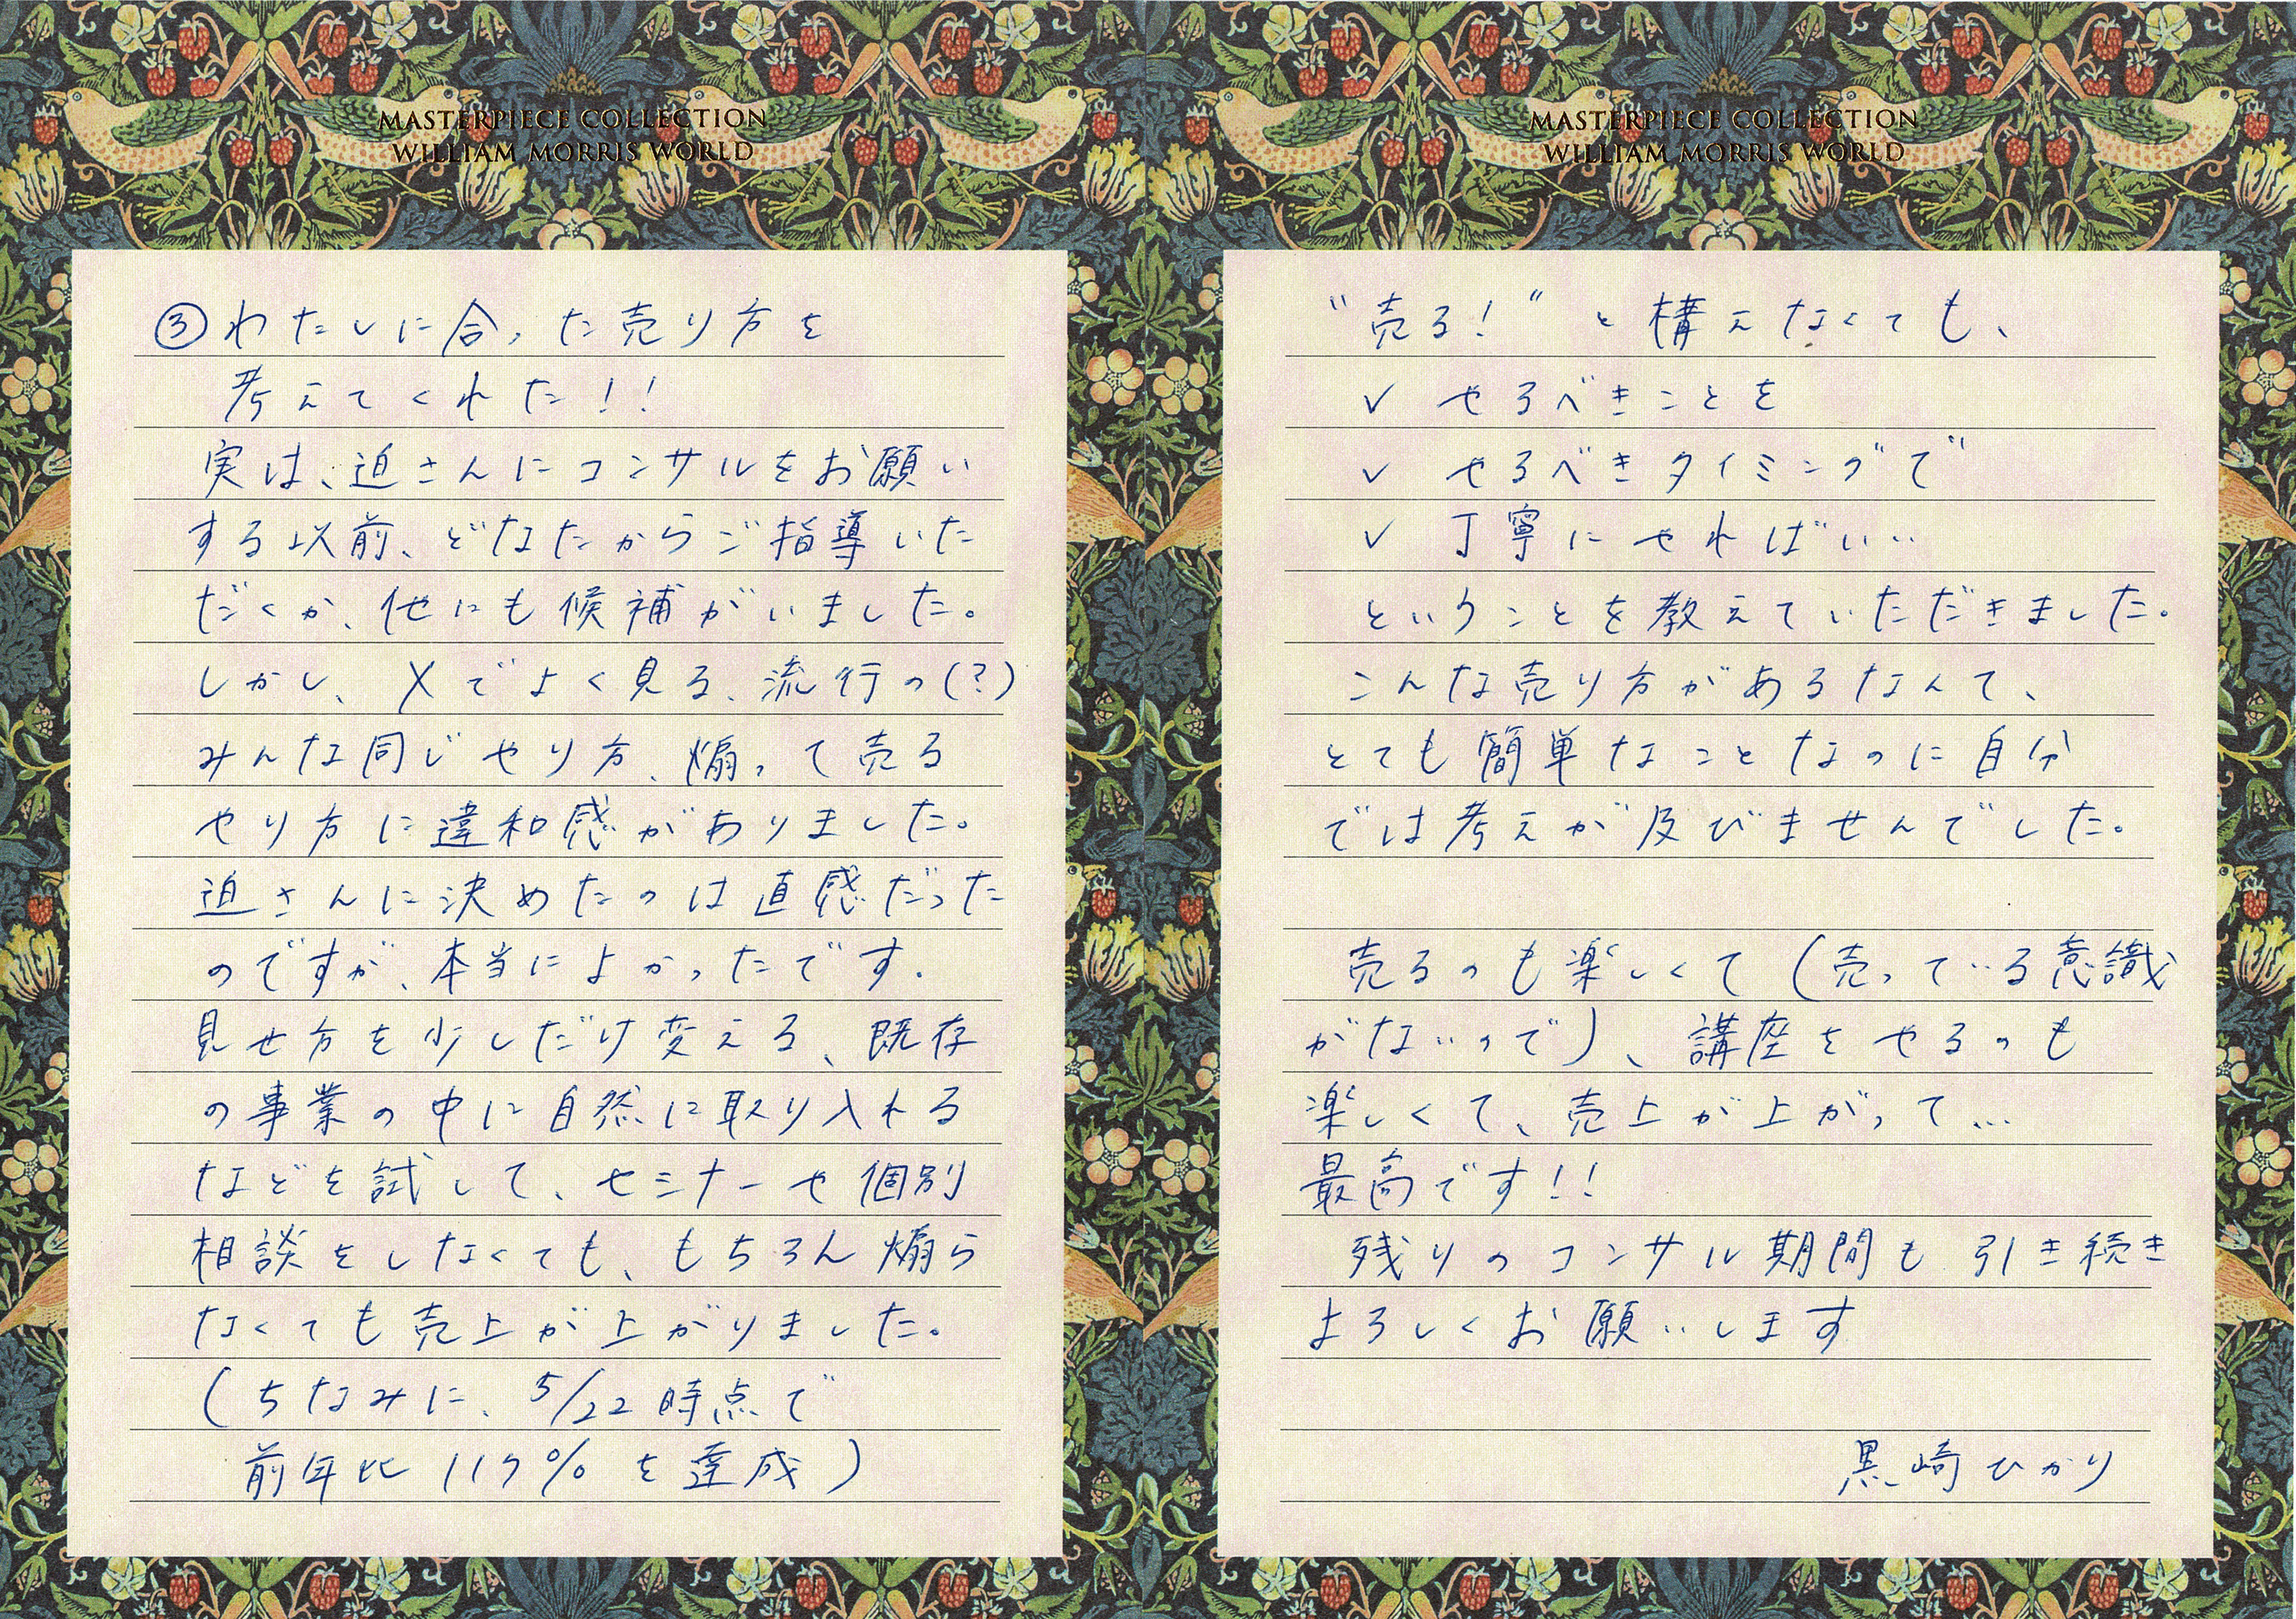 MASTERPIECE COLLECTION
WILLIAM MORRIS WORLD
③わたしに合った売り方を
考えてくれた!!
実は、迫さんにコンサルをお願い
する以前、どなたからご指導いた
だくか、他にも候補がいました。
しかし、Xでよく見る、流行の(?)
みんな同じやり方、煽って売る
やり方に違和感がありました。
迫さんに決めたのは直感だった
のですが、本当によかったです.
見せ方を少しだけ変える、既存
の事業の中に自然に取り入れる
などを試して、セミナーや個別
相談をしなくても、もちろん煽ら
なくても売上が上がりました。
(ちなみに、5/22時点で
前年比117%を達成)
MASTERPIECE COLLECTION
WILLIAM MORRIS WORLD
"売る!"と構えなくても、
✓ やるべきことを
✓ やるべきタイミングで
✓ 丁寧にやればいい
ということを教えていただきました。
こんな売り方があるなんて、
とても簡単なことなのに自分
では考えが及びませんでした。
売るのも楽しくて(売っている意識
がないので)、講座をやるのも
楽しくて、売上が上がって…
最高です!!
残りのコンサル期間も引き続き
よろしくお願いします
黒崎ひかり